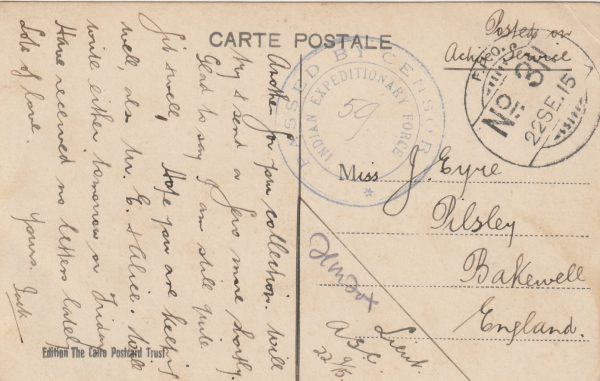 CARTE POSTALE
Posted on
Active Service
PASSED BY CENSOR
INDIAN EXPEDITIONARY FORCE
59
F.P.O.
No. 31
22 SE. 15
Miss J. Eyre
Pilsley
Bakewell
England.
Another for your collection. Will
try & send a few more shortly.
Glad to say I am still quite
fit & well, Hope you are keeping
well, also Mr. E. & Alice. Will
write either tomorrow or Friday
Have received no letters lately
Lots of love.
Yours. Jack
Lieut.
A.S.C.
22/9/15
Edition The Cairo Postcard Trust